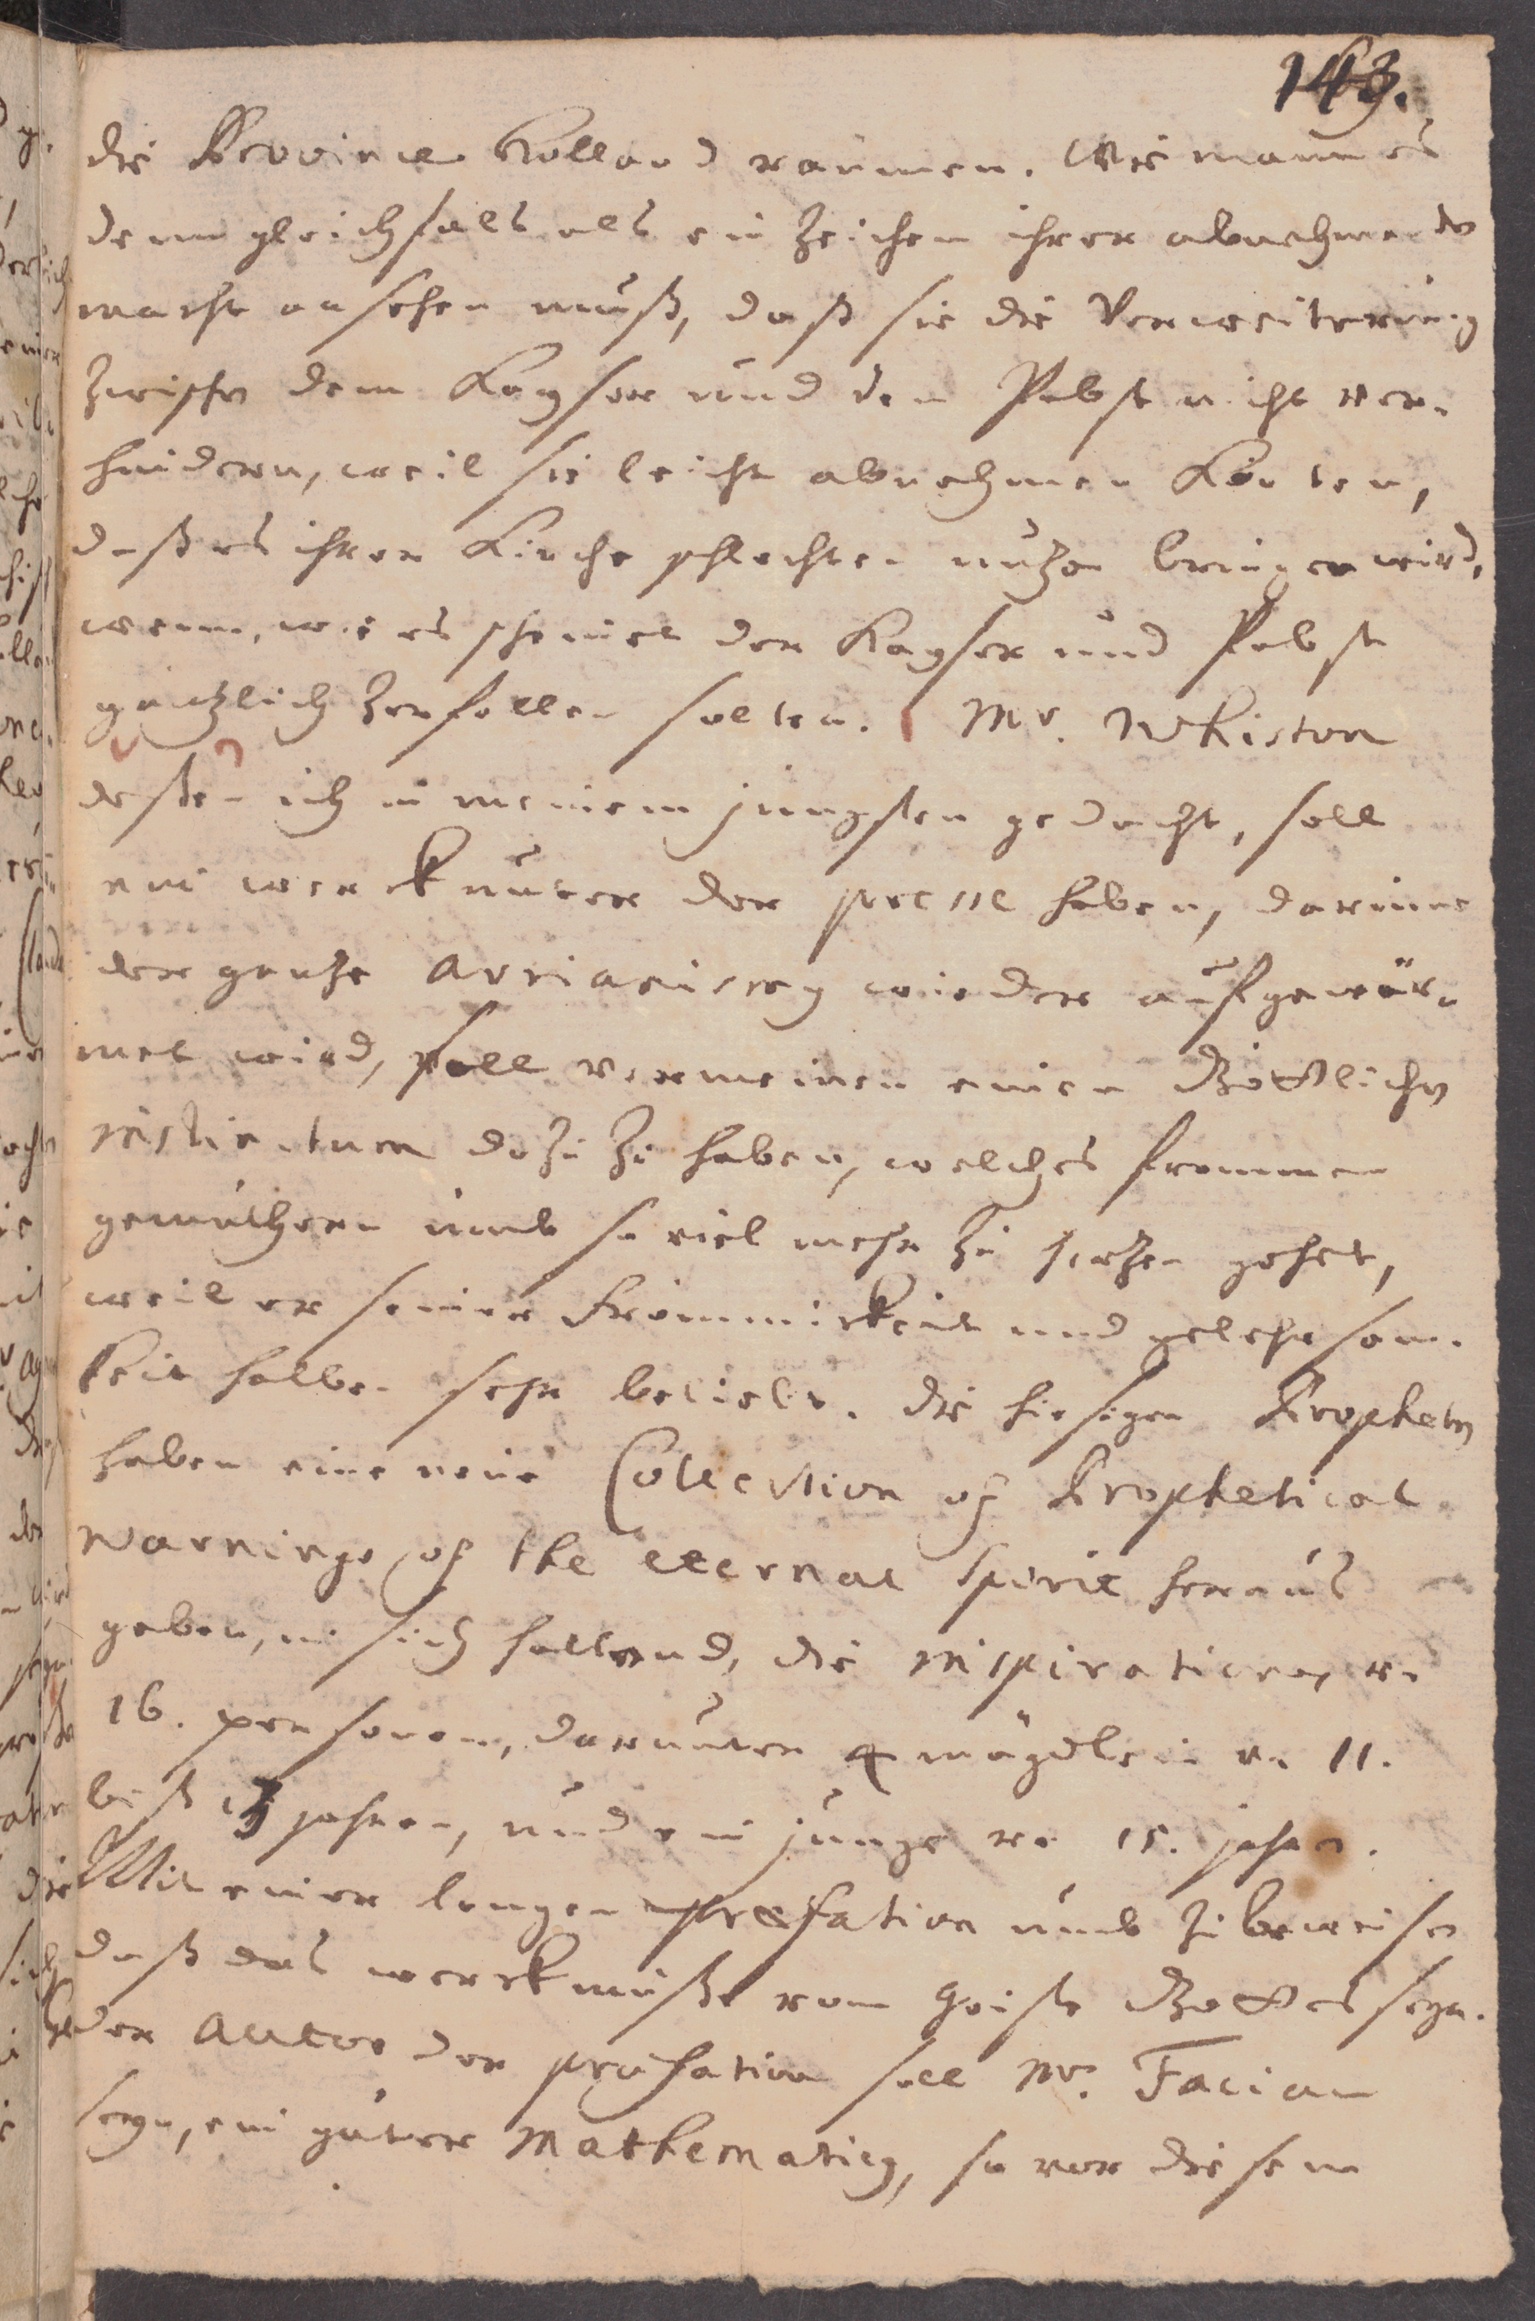 143.
die Province Holland räumen. Wie mann es
denn gleichfals als ein Zeichen ihrer abnehmenden
macht ansehen muß, daß sie die Verweiterung
zwischen dem Kayser und dem Pabst nicht ver-
hindern, weil sie leicht abnehmen könten,
daß es ihrer Kirche schlechten nuzen bringen wird,
wenn, wie es scheinet der Kayser und Pabst
gäntzlich zerfallen solten. Mr. Whiston
deßen ich in meinem jüngsten gedacht, soll
ein werck unter der presse haben, darinne
der gantze Arrianismus wieder aufgewär-
met wird, soll vermeinen einen Göttlichen
instinctum dazu zu haben, welches frommen
gemüthern umb so viel mehr zu herzen gehet,
weil er seiner Frömmickeit und gelehrsam-
keit halber sehr beliebt. Die hiesigen Propheten
haben eine neue Collection of Prophetical
warnings of the eternal Spirit heraus
geben, in sich haltend, die inspirationes von
16. personen, darunter 4 mägdlein von 11.
biß 13 jahren, und ein junge von 15. jahren.
Mit einer langen præfation umb zu beweisen
daß das werck müße vom Geiste Gottes seyn.
der Autor der præfation soll Mr. Facian
seyn, ein guter Mathematicus, so vor diesem